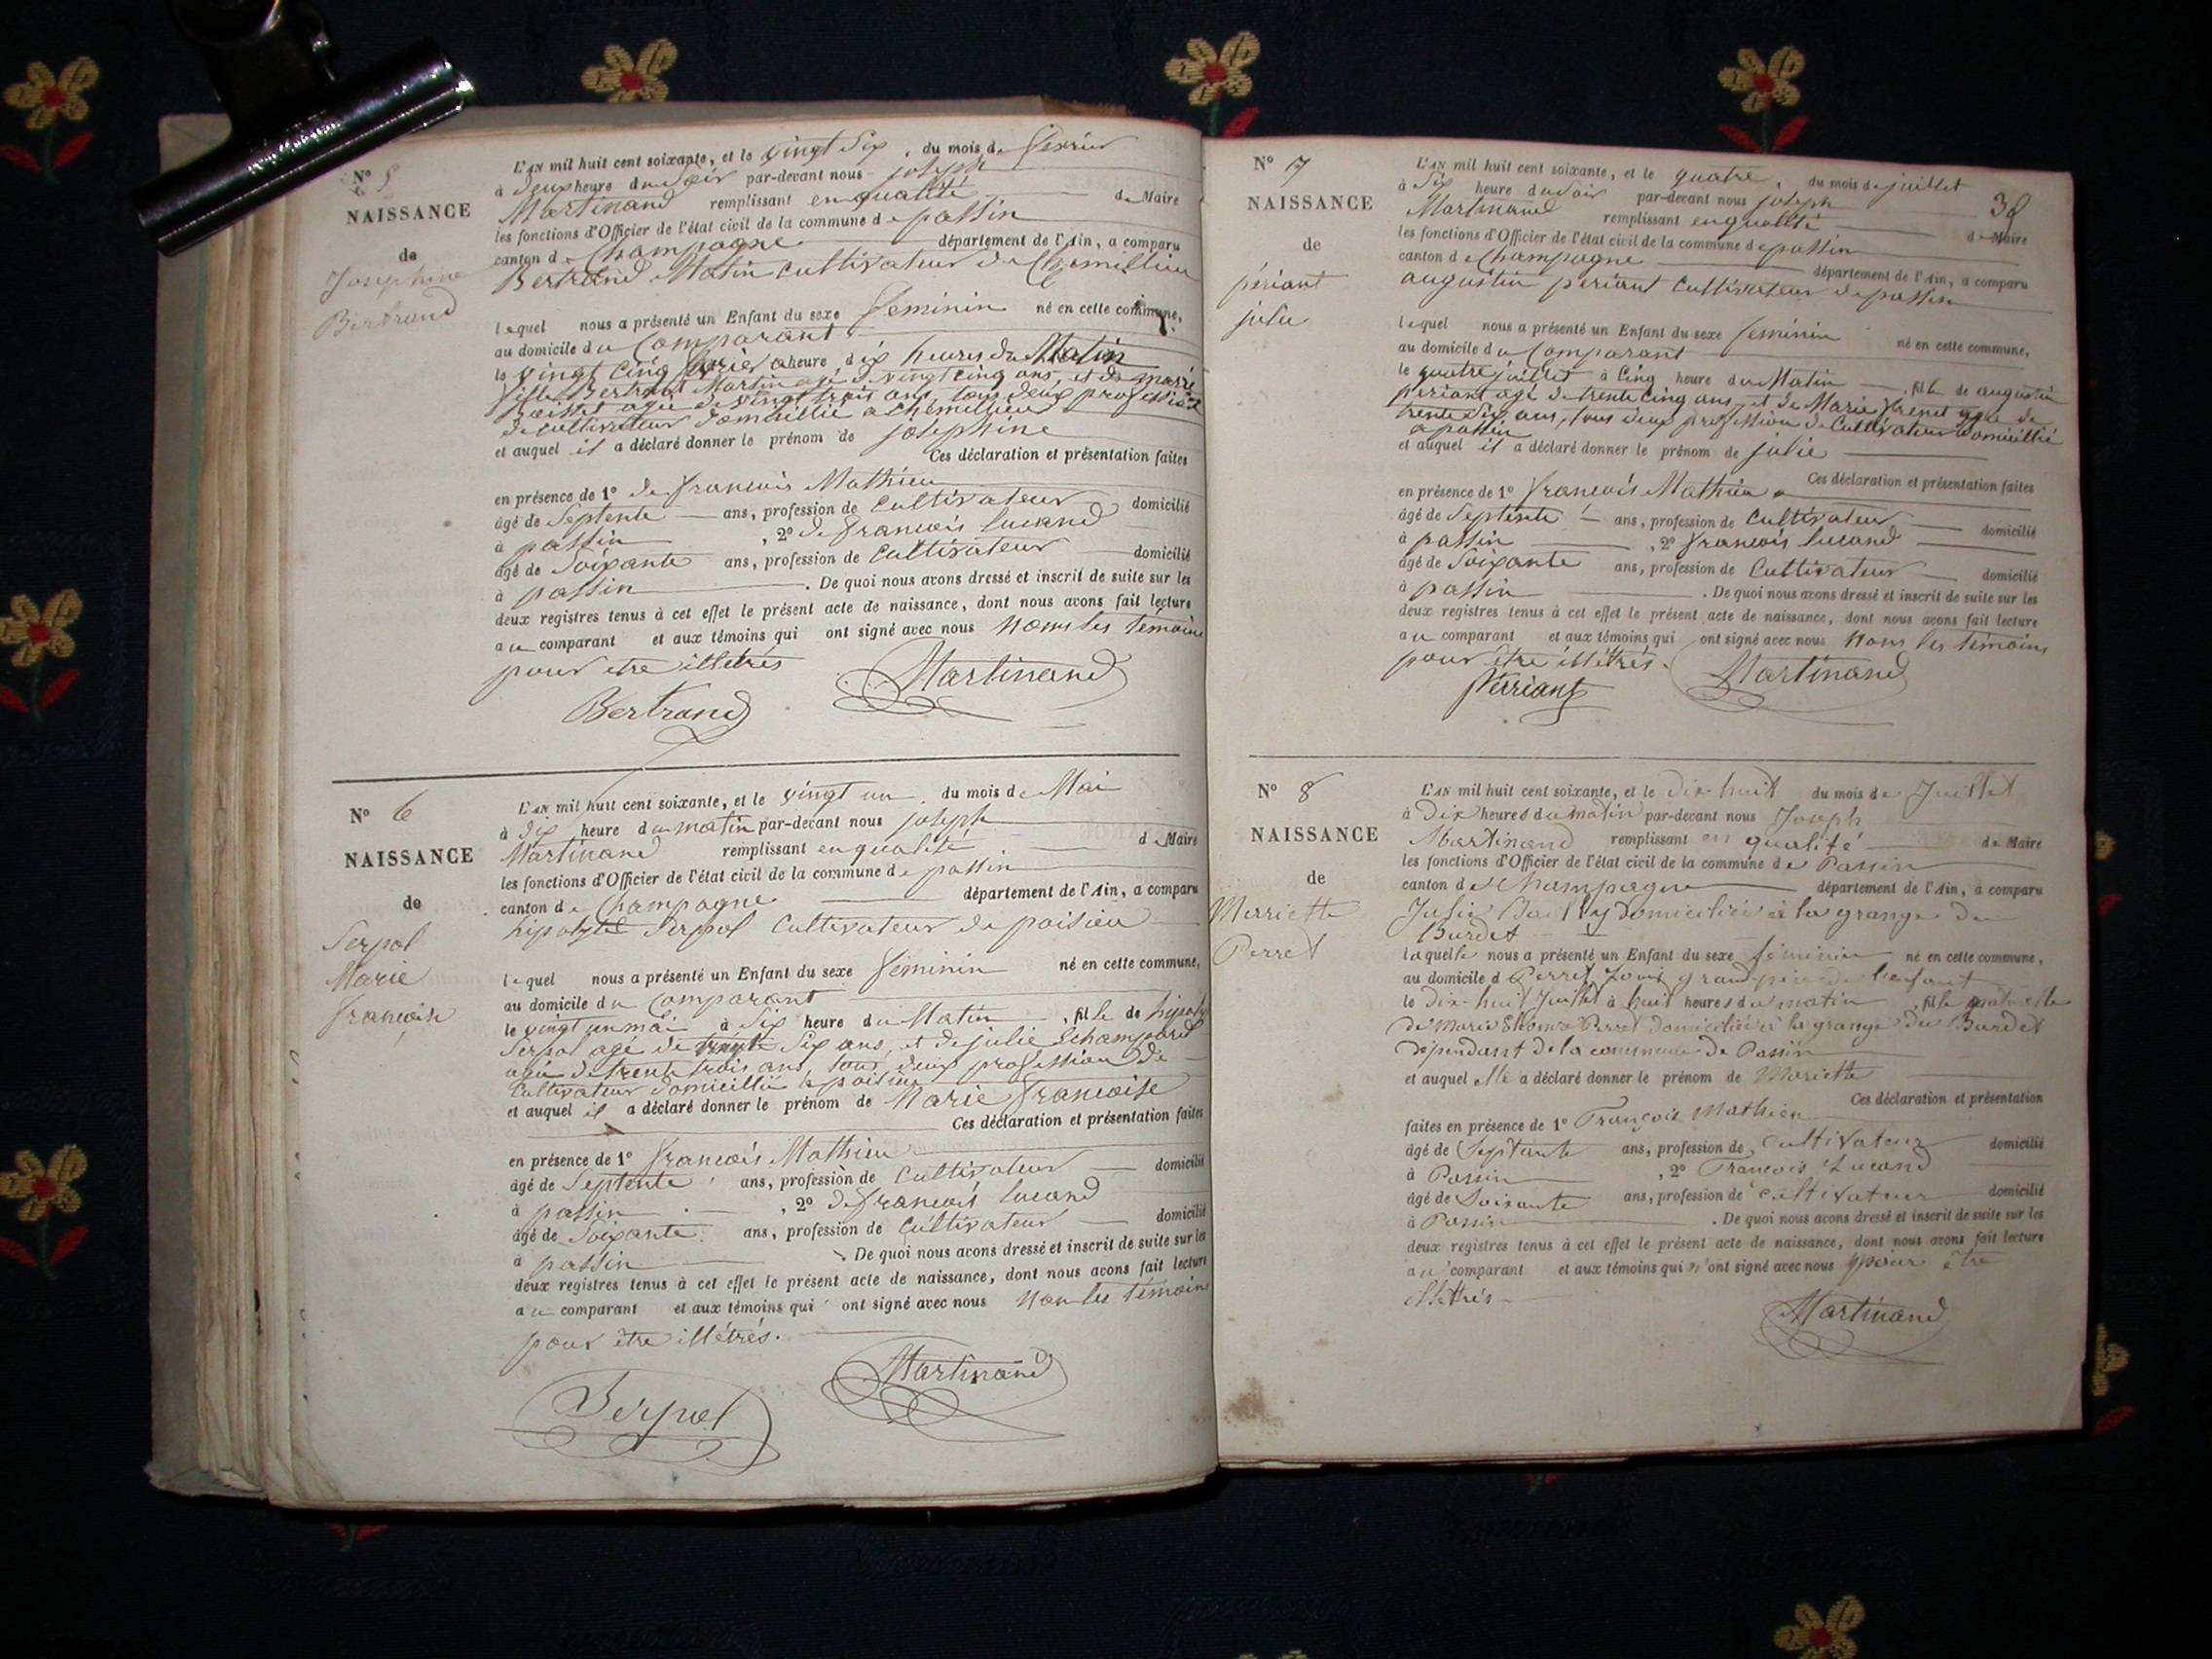 N° 5
NAISSANCE
de
Josephine
Bertrand
L'AN mil huit cent soixante, et le vingt Six, du mois de fevrier
à deux heure du Soir par-devant nous joseph
Martinand remplissant en qualité de Maire
les fonctions d'Officier de l'état civil de la commune de passin
canton de Champagne département de l'Ain, a comparu
Bertrand Matin cultivateur de Chemillieu
lequel nous a présenté un Enfant du sexe feminin né en cette commune,
au domicile du Comparant
le vingt cinq heure dix heures du Matin
fille Bertrant Martin agé de vingt cinq ans, et de marie
agée de vingt trois ans, tous deux profession
de cultivateur domicillié a Chemillieu
et auquel il a déclaré donner le prénom de josephine
Ces déclaration et présentation faites
en présence de 1° de francois Mathieu
âgé de Septente ans, profession de Cultivateur domicilié
à passin, 2° de francois lucand
âgé de Soixante ans, profession de Cultivateur domicilié
à passin. De quoi nous avons dressé et inscrit de suite sur les
deux registres tenus à cet effet le présent acte de naissance, dont nous avons fait lecture
au comparant et aux témoins qui ont signé avec nous nom les témoins
pour etre illétrés
Martinand
Bertrand
N° 6
NAISSANCE
de
Serpol
Marie
francoise
L'AN mil huit cent soixante, et le vingt un, du mois de Mai
à dix heure du matin par-devant nous joseph
Martinand remplissant en qualité de Maire
les fonctions d'Officier de l'état civil de la commune de passin
canton de Champagne département de l'Ain, a comparu
hipolyte Serpol Cultivateur de poisieu
lequel nous a présenté un Enfant du sexe féminin né en cette commune,
au domicile du Comparant
le vingt un mai à Six heure du Matin, fille de hipolyte
Serpol agé de Six ans, et de julie
agée de trente trois ans, tous deux profession de
Cultivateur domicillié à poisieu
et auquel il a déclaré donner le prénom de Marie francoise
Ces déclaration et présentation faites
en présence de 1° francois Mathieu
âgé de Septente ans, profession de Cultivateur domicilié
à passin, 2° de francois lucand
âgé de Soixante ans, profession de Cultivateur domicilié
à passin. De quoi nous avons dressé et inscrit de suite sur les
deux registres tenus à cet effet le présent acte de naissance, dont nous avons fait lecture
au comparant et aux témoins qui ont signé avec nous non les témoins
pour être illétrés.
Martinand
Serpol
38
N° 7
NAISSANCE
de
périant
julie
L'AN mil huit cent soixante, et le quatre, du mois de juillet
à Six heure du soir par-devant nous joseph
Martinand remplissant en qualité de Maire
les fonctions d'Officier de l'état civil de la commune de passin
canton de Champagne département de l'Ain, a comparu
augustin périant Cultivateur de passin
lequel nous a présenté un Enfant du sexe feminin né en cette commune,
au domicile du Comparant
le quatre juillet à Cinq heure du Matin, fille de augustin
périant agé de trente Cinq ans, et de Marie agée de
trente Six ans, tous deux profession de Cultivateur domicillié
a passin
et auquel il a déclaré donner le prénom de julie
Ces déclaration et présentation faites
en présence de 1° francois Mathieu
âgé de Septente ans, profession de Cultivateur domicilié
à passin, 2° francois lucand
âgé de Soixante ans, profession de Cultivateur domicilié
à passin. De quoi nous avons dressé et inscrit de suite sur les
deux registres tenus à cet effet le présent acte de naissance, dont nous avons fait lecture
au comparant et aux témoins qui ont signé avec nous nons les témoins
pour être illétrés.
Martinand
Périant
N° 8
NAISSANCE
de
Marriette
Perret
L'AN mil huit cent soixante, et le dix-huit du mois de Juillet
à Dix heures du matin par-devant nous Joseph
Martinand remplissant en qualité de Maire
les fonctions d'Officier de l'état civil de la commune de Passin
canton de Champagne département de l'Ain, a comparu
Julie Bailly domiciliée à la grange du
Burdet
laquelle nous a présenté un Enfant du sexe féminin né en cette commune,
au domicile d Perret Louis grand-père de l'enfant
le dix-huit Juillet à huit heures du matin, fille naturelle
de Marie Perret domiciliée à la grange du Burdet
dépendant de la commune de Passin
et auquel elle a déclaré donner le prénom de Mariette
Ces déclaration et présentation
faites en présence de 1° François Mathieu
âgé de Septante ans, profession de Cultivateur domicilié
à Passin, 2° François Lucand
âgé de Soixante ans, profession de cultivateur domicilié
à Passin. De quoi nous avons dressé et inscrit de suite sur les
deux registres tenus à cet effet le présent acte de naissance, dont nous avons fait lecture
au comparant et aux témoins qui n'ont signé avec nous pour être
illettrés
Martinand